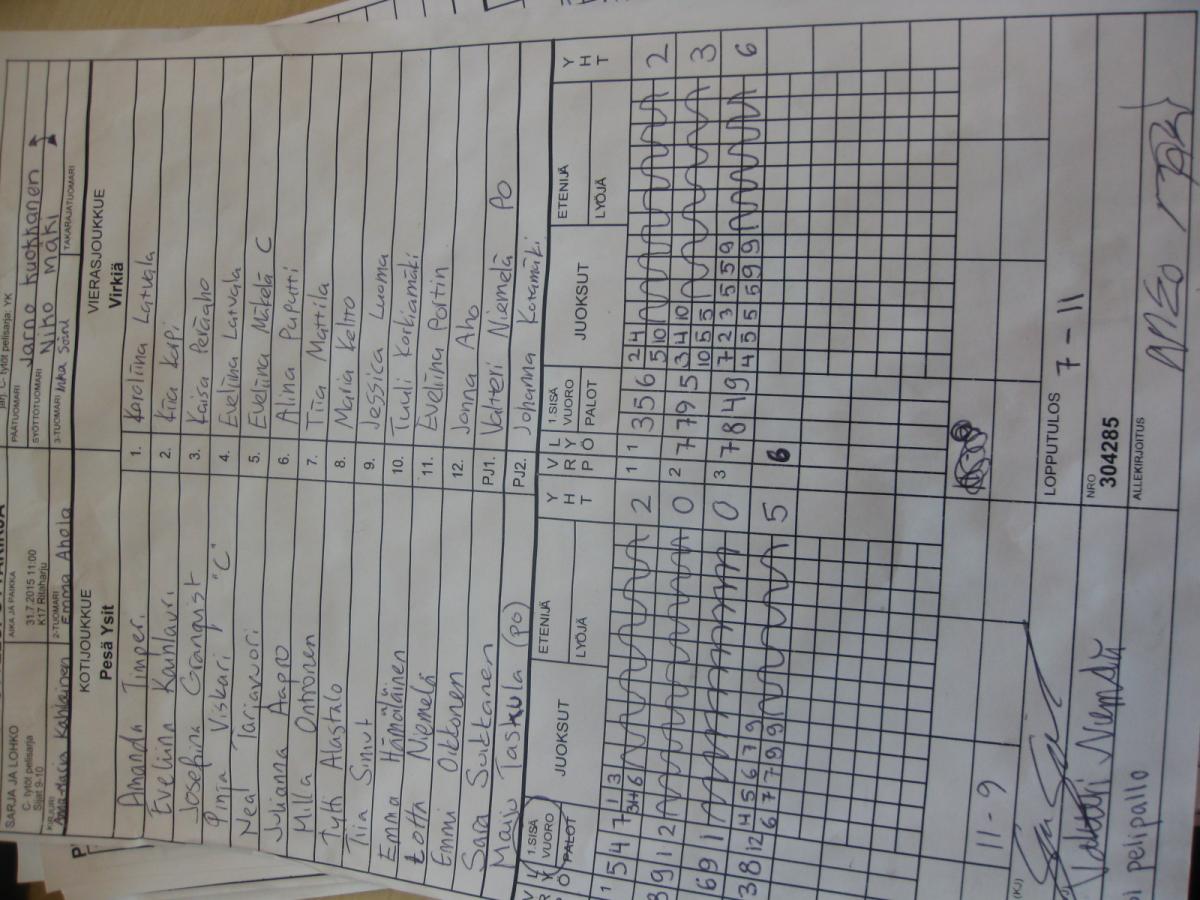 SARJA JA LOHKO
C- tytöt pelisarja
Sijat 9-10
AIKA JA PAIKKA
31.7.2015 11:00
K17 Ritaharju
PÄÄTUOMARI Jarno Kuokkanen
SYÖTTÖTUOMARI Niho Mäki
KIRJURI
2-TUOMARI Emma Ahola
3-TUOMARI
TAKARAJATUOMARI
KOTIJOUKKUE
Pesä Ysit
VIERASJOUKKUE
Virkiä
Amanda Timperi 1. Karoliina Latvala
Eveliina Kaunlauri 2. Kiia Karpi
Josefina Granqvist 3. Kaisa Peräaho
Pinja Viskari "C" 4. Eveliina Latvala
Neal Tarjavuori 5. Eveliina Mäkelä C
Julianna Aappo 6. Alina Puputti
Milla Ontronen 7. Tiia Mattila
Tytti Alastalo 8. Maria Keltto
Tiia Sinut 9. Jessica Luoma
Emma Hämäläinen 10. Tuuli Korkiamäki
Lotta Niemelä 11. Eveliina Portin
Emmi Olkkonen 12. Jonna Aho
Sara Suikkanen PJ1. Valtteri Niemelä PO
Maiju Taskula (PO) PJ2. Johanna Koramäki
1.SISÄ VUORO PALOT JUOKSUT ETENIJÄ LYÖJÄ YHT V R P L Y Ö 1.SISÄ VUORO PALOT JUOKSUT ETENIJÄ LYÖJÄ YHT
1 5 4 7 1 3 2 1 1 3 5 6 2 4 2
3 4 6 5 10
3 9 1 2 0 2 7 7 9 5 3 4 10 3
10 5 5
6 9 1 0 3 7 8 4 9 7 2 3 5 5 9 6
4 5 5 5 9 9
3 8 12 4 5 6 7 9 5 6
6 7 7 9 9
11-9
LOPPUTULOS 7 - 11
(KJ)
NRO
304285
Valtteri Niemelä
ALLEKIRJOITUS
pelipallo